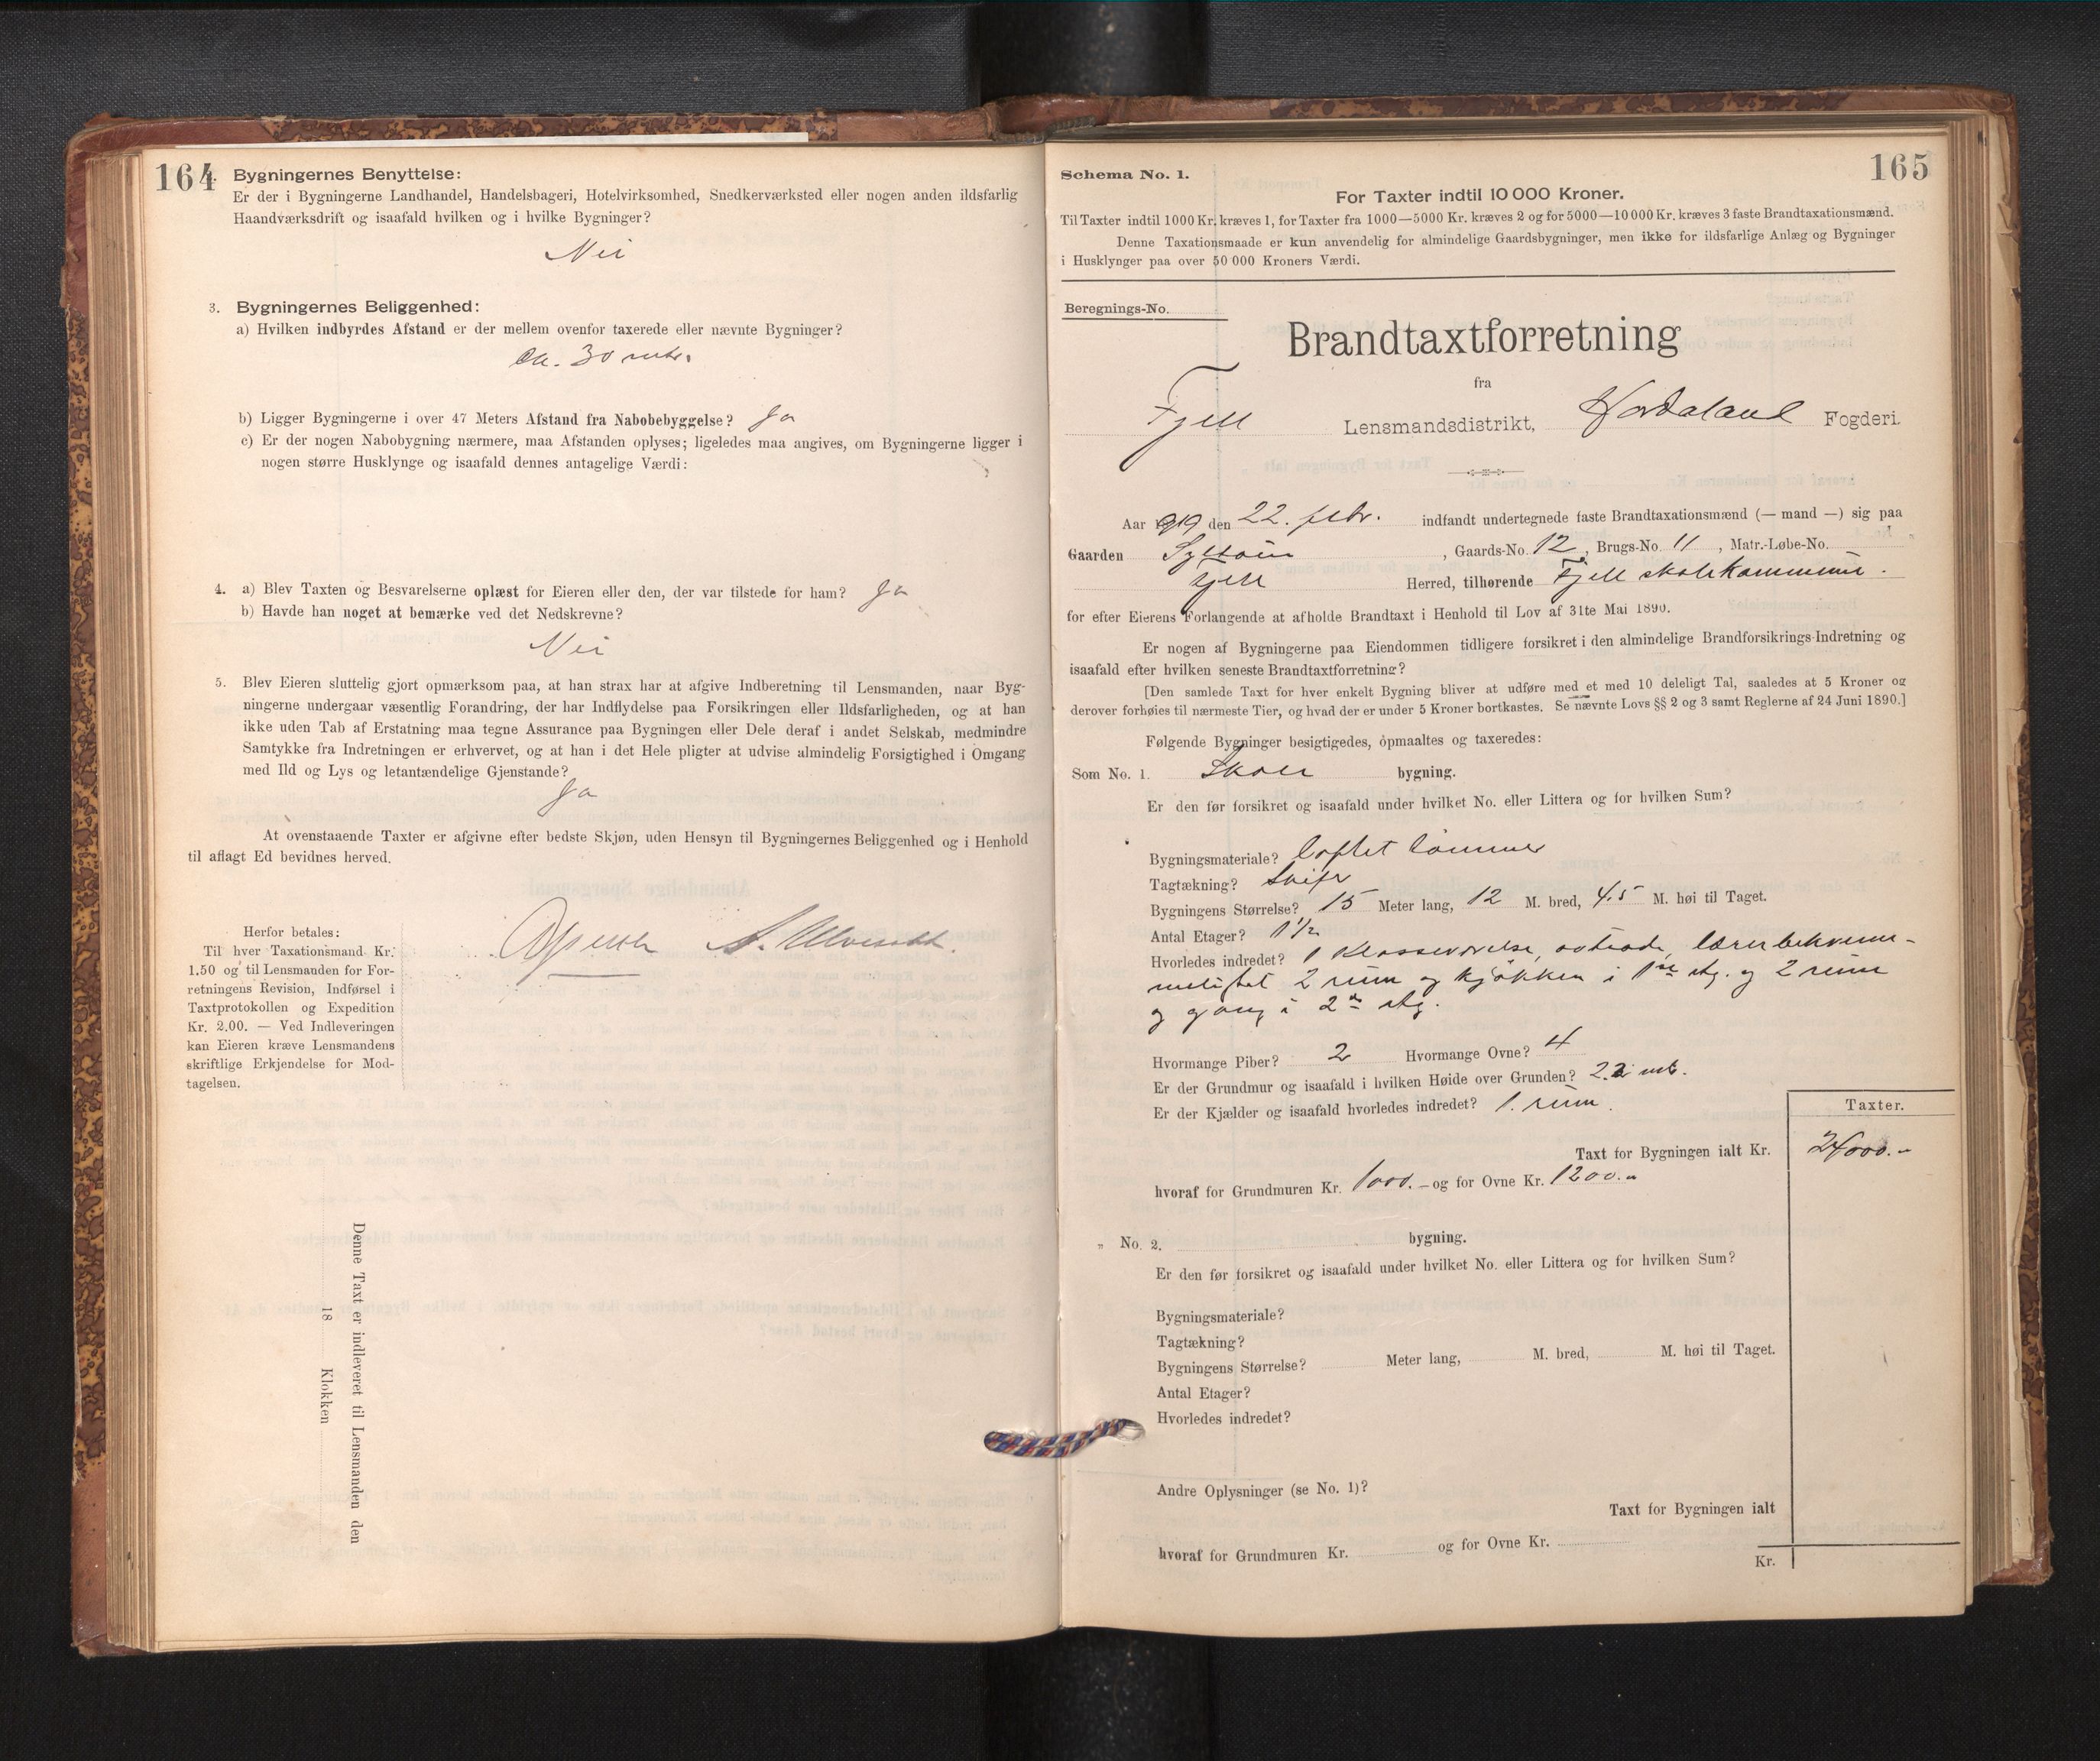 164
Bygningernes Benyttelse:
Er der i Bygningerne Landhandel, Handelsbageri, Hotelvirksomhed, Snedkerværksted eller nogen anden ildsfarlig
Haandværksdrift og isaafald hvilken og i hvilke Bygninger?
Nei
3. Bygningernes Beliggenhed:
a) Hvilken indbyrdes Afstand er der mellem ovenfor taxerede eller nævnte Bygninger?
ca. 30 mtr.
b) Ligger Bygningerne i over 47 Meters Afstand fra Nabobebyggelse? Ja
c) Er der nogen Nabobygning nærmere, maa Afstanden oplyses; ligeledes maa angives, om Bygningerne ligger i
nogen større Husklynge og isaafald dennes antagelige Værdi:
4. a) Blev Taxten og Besvarelserne oplæst for Eieren eller den, der var tilstede for ham? Ja
b) Havde han noget at bemærke ved det Nedskrevne?
Nei
5. Blev Eieren sluttelig gjort opmærksom paa, at han strax har at afgive Indberetning til Lensmanden, naar Byg-
ningerne undergaar væsentlig Forandring, der har Indflydelse paa Forsikringen eller Ildsfarligheden, og at han
ikke uden Tab af Erstatning maa tegne Assurance paa Bygningen eller Dele deraf i andet Selskab, medmindre
Samtykke fra Indretningen er erhvervet, og at han i det Hele pligter at udvise almindelig Forsigtighed i Omgang
med Ild og Lys og letantændelige Gjenstande?
Ja
At ovenstaaende Taxter er afgivne efter bedste Skjøn, uden Hensyn til Bygningernes Beliggenhed og i Henhold
til aflagt Ed bevidnes herved.
Herfor betales:
Til hver Taxationsmand Kr.
1.50 og til Lensmanden for For-
retningens Revision, Indførsel i
Taxtprotokollen og Expedition
Kr. 2.00. — Ved Indleveringen
kan Eieren kræve Lensmandens
skriftlige Erkjendelse for Mod-
tagelsen.
A. Ulveseth
Denne Taxt er indleveret til Lensmanden den
18 Klokken
165
Schema No. 1.
For Taxter indtil 10 000 Kroner.
Til Taxter indtil 1000 Kr. kræves 1, for Taxter fra 1000—5000 Kr. kræves 2 og for 5000—10 000 Kr. kræves 3 faste Brandtaxationsmænd.
Denne Taxationsmaade er kun anvendelig for almindelige Gaardsbygninger, men ikke for ildsfarlige Anlæg og Bygninger
i Husklynger paa over 50 000 Kroners Værdi.
Beregnings-No.
Brandtaxtforretning
fra
Fjell Lensmandsdistrikt, Hordaland Fogderi.
Aar 1919 den 22. febr. indfandt undertegnede faste Brandtaxationsmænd (— mand —) sig paa
Gaarden , Gaards-No. 12, Brugs-No. 11 , Matr.-Løbe-No. „
Fjell Herred, tilhørende Fjell skolekommune.
for efter Eierens Forlangende at afholde Brandtaxt i Henhold til Lov af 31te Mai 1890.
Er nogen af Bygningerne paa Eiendommen tidligere forsikret i den almindelige Brandforsikrings-Indretning og
isaafald efter hvilken seneste Brandtaxtforretning?
[Den samlede Taxt for hver enkelt Bygning bliver at udføre med et med 10 deleligt Tal, saaledes at 5 Kroner og
derover forhøies til nærmeste Tier, og hvad der er under 5 Kroner bortkastes. Se nævnte Lovs §§ 2 og 3 samt Reglerne af 24 Juni 1890.]
Følgende Bygninger besigtigedes, opmaaltes og taxeredes:
Som No. 1. Skole bygning.
Er den før forsikret og isaafald under hvilket No. eller Littera og for hvilken Sum?
Bygningsmateriale? loftet tømmer
Tagtækning? Skifer
Bygningens Størrelse? 15 Meter lang, 12 M. bred, 4.5 M. høi til Taget.
Antal Etager? 1½
Hvorledes indredet? 1 klasseværelse, avtræde, lærerbekvem-
melighet 2 rum og kjøkken i 1ste etg. og 2 rum
og gang i 2n etg.
Hvormange Piber? 2 Hvormange Ovne? 4
Er der Grundmur og isaafald i hvilken Høide over Grunden? 2.2 mtr.
Er der Kjælder og isaafald hvorledes indredet? 1. rum.
Taxter.
Taxt for Bygningen ialt Kr. 24000.-
hvoraf for Grundmuren Kr. 1000.- og for Ovne Kr. 1200.-
„ No. 2. bygning.
Er den før forsikret og isaafald under hvilket No. eller Littera og for hvilken Sum?
Bygningsmateriale?
Tagtækning?
Bygningens Størrelse? Meter lang, M. bred, M. høi til Taget.
Antal Etager?
Hvorledes indredet?
Andre Oplysninger (se No. 1)?
Taxt for Bygningen ialt
hvoraf for Grundmuren Kr. og for Ovne Kr.
Kr.